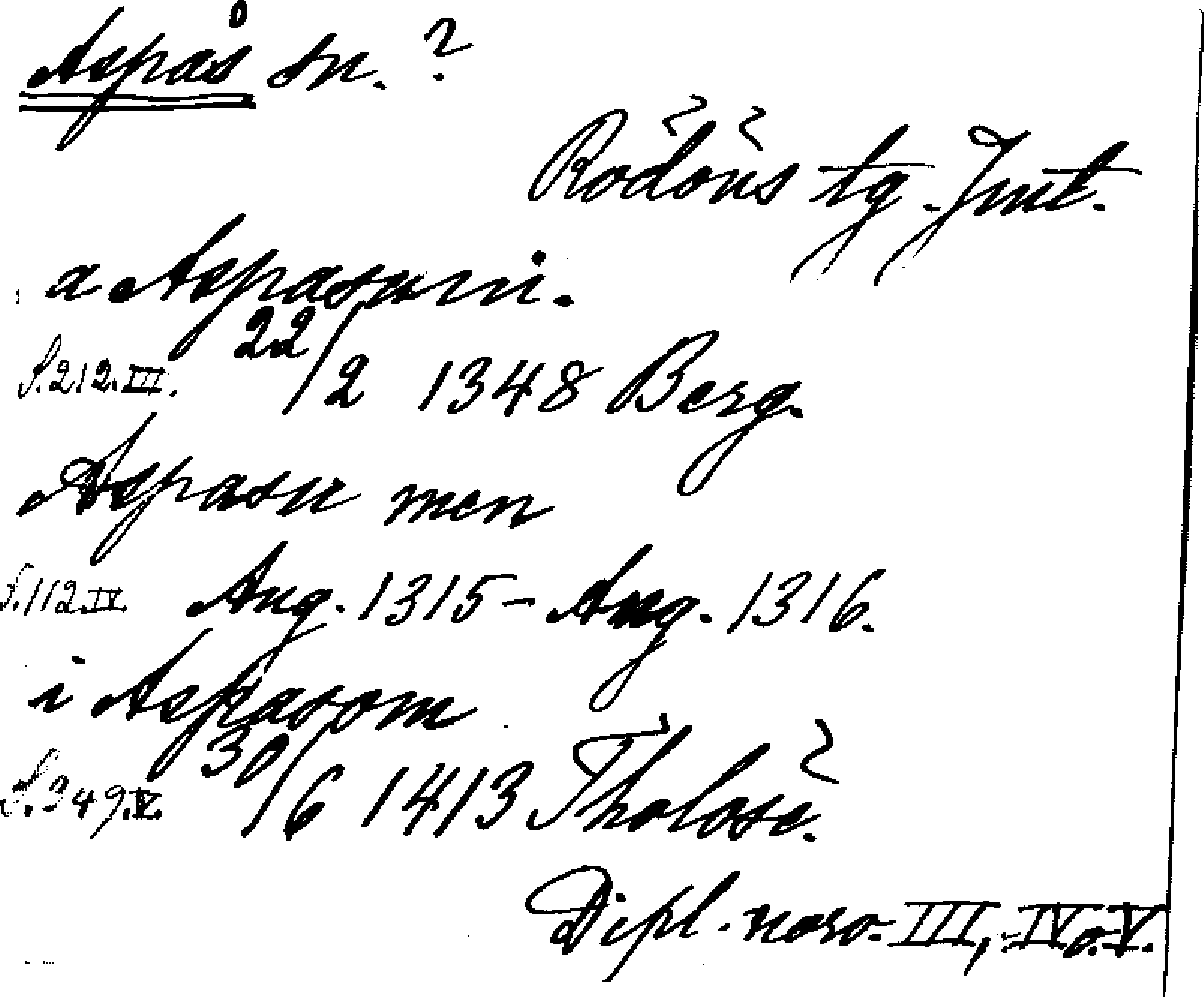 Aspås sn. ?
Rödöns tg. Jmt.
a Aspasumi.
S. 212. III. 22/2 1348 Berg.
Aspasu men
S. 112. IV. Aug. 1315 - Aug. 1316.
i Aspasom
S. 349. V. 30/6 1413 Tholose.
Dipl. norv. III, IV o. V.